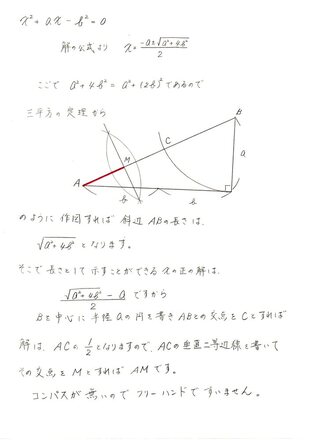 x² + ax - b² = 0
解の公式より x = (-a±√(a²+4b²))/2
ここで a²+4b² = a²+(2b)² であるので
三平方の定理から
B
C
M
a
A
b
b
のように作図すれば 斜辺ABの長さは、
√(a²+4b²) となります。
そこで長さとして示すことができるxの正の解は、
(√(a²+4b²) - a)/2 ですから
Bを中心に半径aの円を書きABとの交点をCとすれば
解は、ACの 1/2 となりますので、ACの垂直二等辺線を書いて
その交点をMとすれば AMです。
コンパスが無いので フリーハンドですいません。